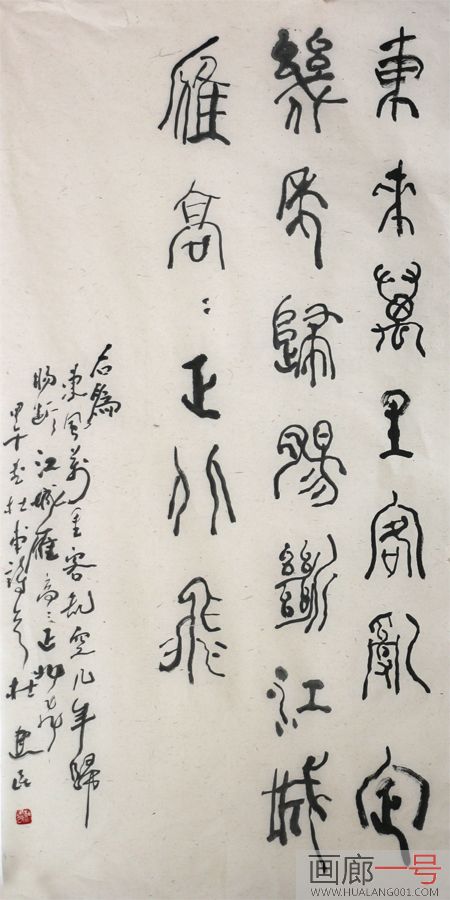 東來萬里客亂定
幾年歸腸斷江城
雁高〻正北飛
右為
東來萬里客亂定几年歸
腸斷江城雁高〻正北飛
甲午春杜甫詩
画廊一号
WWW.HUALANG001.COM